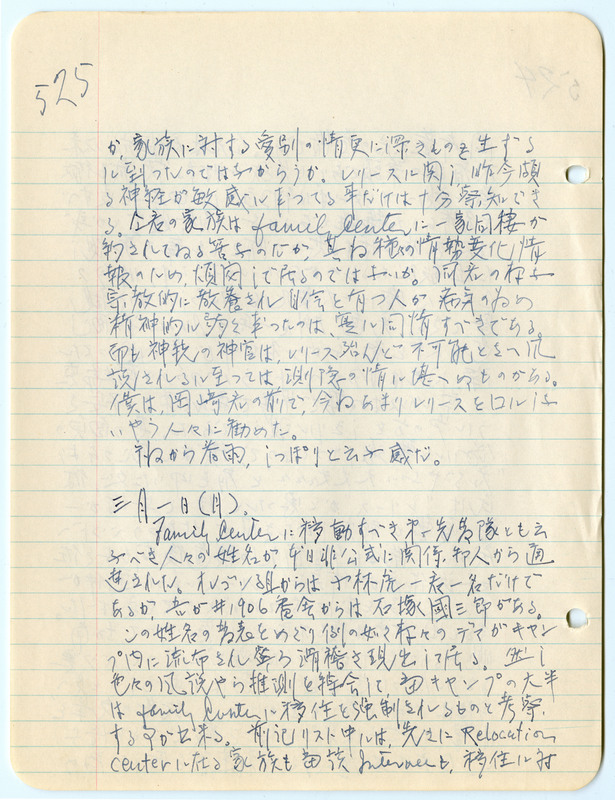 525
か、家族に対する愛別の情更に深きものを生ずる
に到つたのではなからうか。レリースに関し、昨今頗
る神経が敏感になつてる事だけは十分察知でき
る。 君の家族は family Center に一家同棲が
約されてゐる筈なのだが、其 種々の情勢変化、情
報のため、煩悶して居るのではないか。 君の
放的に放養され自信を有つ人が病気の為め
精神的に弱くなつたのは、実に同情すべきである。
而も神 の神官は、レリース殆んど不可能とさへ風
説されるに至つては、惻隠の情に堪へぬものがある。
僕は、岡崎君の前で、今 あまりレリースを口にしな
いやう人々に勧めた。
から春雨、しつぽりと云ふ感だ。
三月一日(月)。
Family Center に移動すべき第一先発隊とも云
ふべき人々の姓名が、本日非公式に関係 人から通
達された。オレゴン組からは 林虎一君一名だけで
あるが、吾が #1906 番舎からは石塚國三郎がある。
この姓名の発表をめぐり例の如く種々のデマがキャン
プ内に流布され 現出して居る。然し
色々の風説やら推測を綜合して、当キャンプの大半
は family Center に移住を強制されるものと考察
する事が出来る。前記リスト中には、先きに Relocation
Center に在る家族も当該 Internee も、移住に対